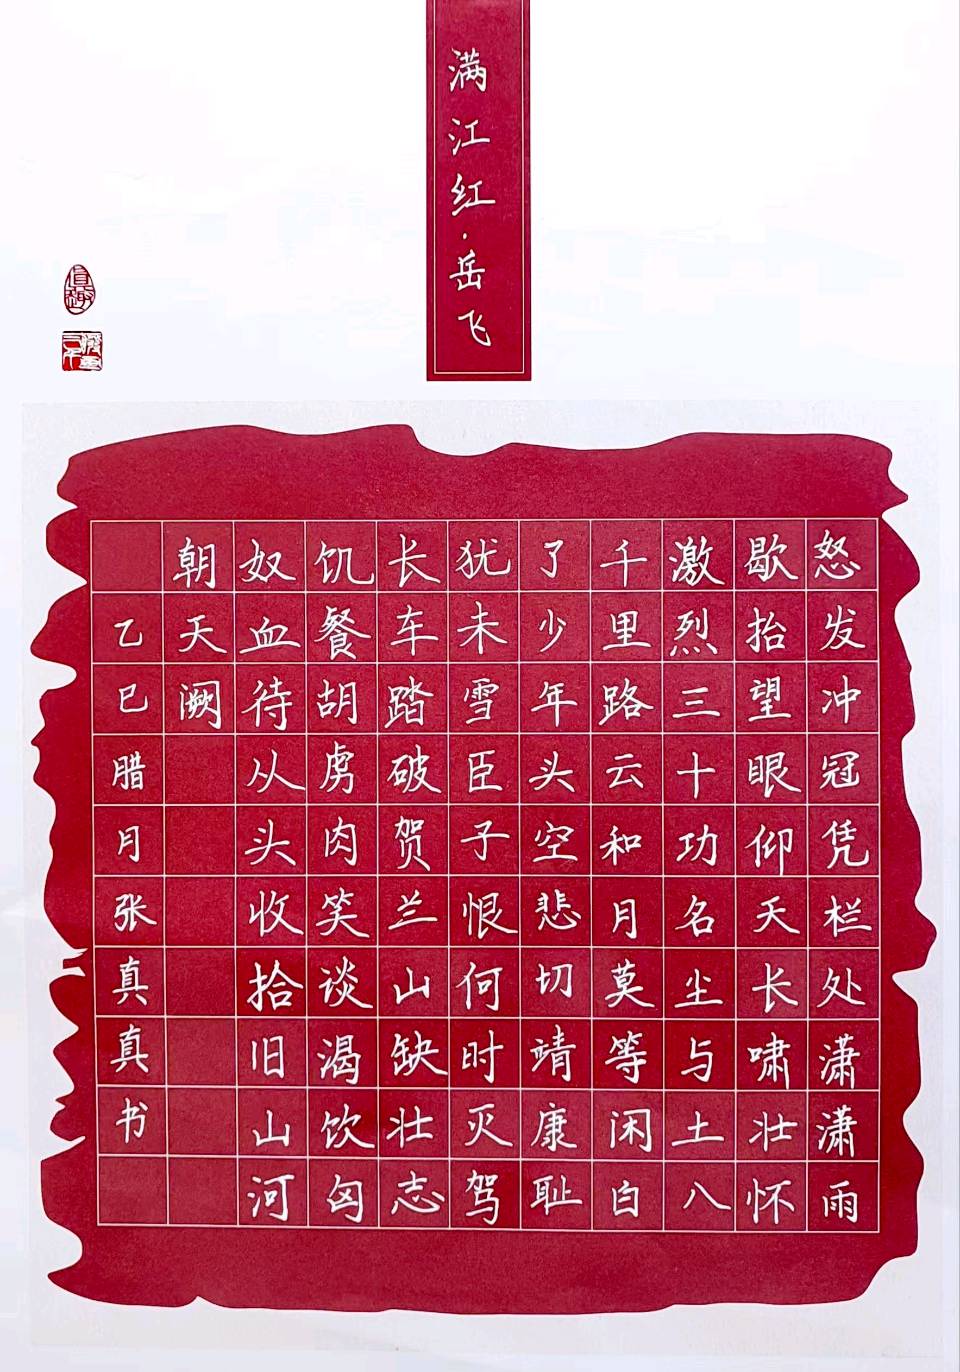 满江红·岳飞
怒发冲冠凭栏处潇潇雨
歇抬望眼仰天长啸壮怀
激烈三十功名尘与土八
千里路云和月莫等闲白
了少年头空悲切靖康耻
犹未雪臣子恨何时灭驾
长车踏破贺兰山缺壮志
饥餐胡虏肉笑谈渴饮匈
奴血待从头收拾旧山河
朝天阙
乙巳腊月张真真书